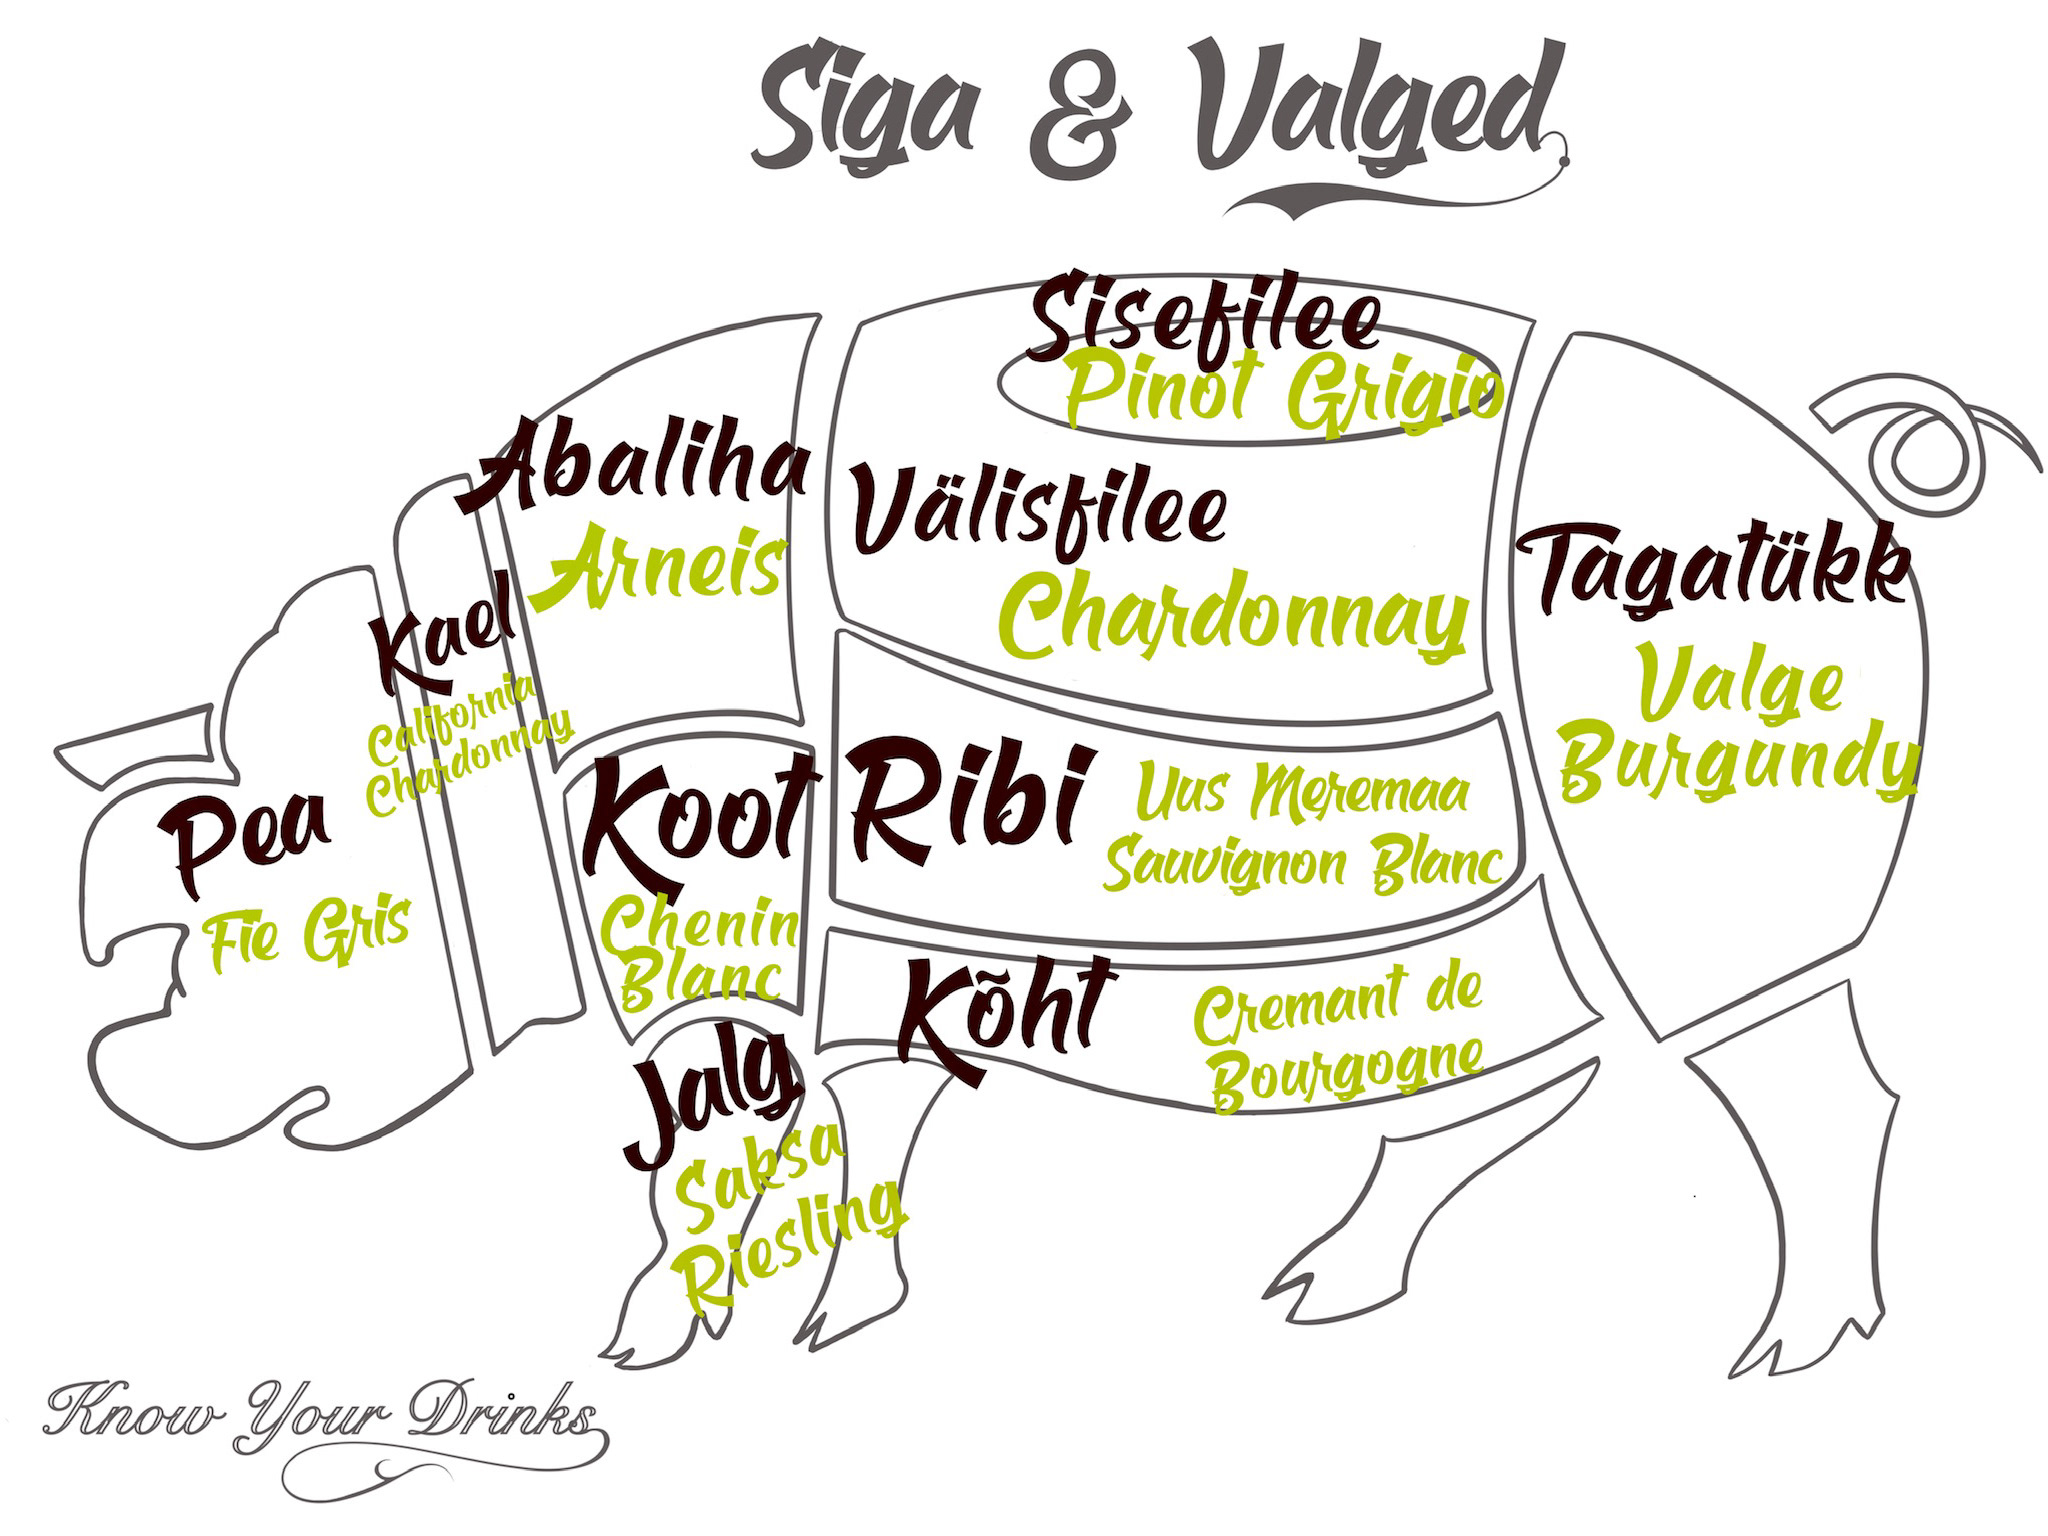 Siga & Valged
Sisefilee
Pinot Grigio
Abaliha
Arneis
Välisfilee
Chardonnay
Tagatükk
Valge
Burgundy
Kael
California
Chardonnay
Pea
Fie Gris
Koot
Chenin
Blanc
Ribi
Uus Meremaa
Sauvignon Blanc
Köht
Cremant de
Bourgogne
Jalg
Saksa
Riesling
Know Your Drinks